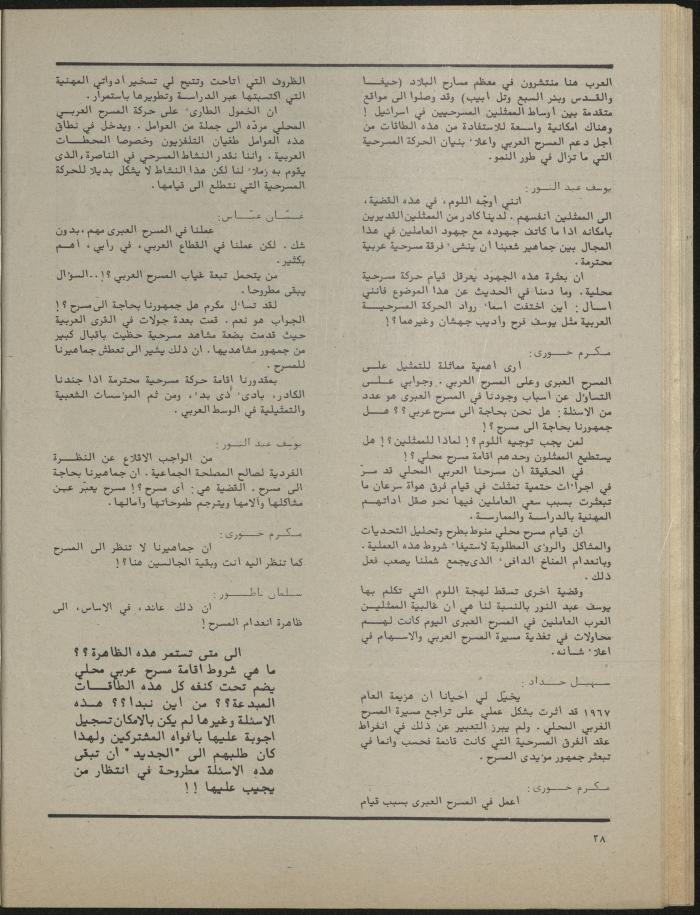 العرب هنا منتشرون في معظم مسارح البلاد (حيفا
والقدس وبئر السبع وتل ابيب) وقد وصلوا الى مواقع
متقدمة بين اوساط الممثلين المسرحيين في اسرائيل !
وهناك امكانية واسعة للاستفادة من هذه الطاقات من
اجل دعم المسرح العربي واعلاء بنيان الحركة المسرحية
التي ما تزال في طور النمو.
يوسف عبد النور:
انني أوجّه اللوم، في هذه القضية،
الى الممثلين انفسهم. لدينا كادر من الممثلين القديرين
بامكانه اذا ما كاتف جهوده مع جهود العاملين في هذا
المجال بين جماهير شعبنا ان ينشىء فرقة مسرحية عربية
محترمة.
ان بعثرة هذه الجهود يعرقل قيام حركة مسرحية
محلية. وما دمنا في الحديث عن هذا الموضوع فانني
اسأل: اين اختفت اسماء رواد الحركة المسرحية
العربية مثل يوسف فرح واديب جهشان وغيرهما؟!
مكرم خوري:
أرى أهمية مماثلة للتمثيل على
المسرح العبرى وعلى المسرح العربي. وجوابي على
التساؤل عن اسباب وجودنا في المسرح العبرى هو عدد
من الاسئلة: هل نحن بحاجة الى مسرح عربي؟؟ هل
جمهورنا بحاجة الى مسرح؟!
لمن يجب توجيه اللوم؟! لماذا للممثلين؟! هل
يستطيع الممثلون وحدهم اقامة مسرح محلي؟!
في الحقيقة ان مسرحنا العربي المحلي قد مرّ
في اجراءات حتمية تمثلت في قيام فرق هواة سرعان ما
تبعثرت بسبب سعي العاملين فيها نحو صقل اداتهم
المهنية بالدراسة والممارسة.
ان قيام مسرح محلي منوط بطرح وتحليل التحديات
والمشاكل والرؤى المطلوبة لاستيفاء شروط هذه العملية.
وبانعدام المناخ الدافىء الذي يجمع شملنا يصعب فعل
ذلك.
وقضية اخرى تسقط لهجة اللوم التي تكلم بها
يوسف عبد النور بالنسبة لنا هي ان غالبية الممثلين
العرب العاملين في المسرح العبرى اليوم كانت لهم
محاولات في تغذية مسيرة المسرح العربي والاسهام في
اعلاء شأنه.
سهيل حداد:
يخيّل لي احيانا ان هزيمة العام
١٩٦٧ قد أثرت بشكل عملي على تراجع مسيرة المسرح
الغربي المحلي. ولم يبرز التعبير عن ذلك في انفراط
عقد الفرق المسرحية التي كانت قائمة فحسب وانما في
تبعثر جمهور مؤيدى المسرح.
مكرم خوري:
أعمل في المسرح العبرى بسبب قيام
الظروف التي اتاحت وتتيح لي تسخير أدواتي المهنية
التي اكتسبتها عبر الدراسة وتطويرها باستمرار.
ان الخمول الطارىء على حركة المسرح العربي
المحلي مردّه الى جملة من العوامل. ويدخل في نطاق
هذه العوامل طغيان التلفزيون وخصوصا المحطات
العربية. واننا نقدر النشاط المسرحي في الناصرة، الذى
يقوم به زملاء لنا لكن هذا النشاط لا يشكل بديلا للحركة
المسرحية التي نتطلع الى قيامها.
غسّان عبّاس:
عملنا في المسرح العبرى مهم، بدون
شك. لكن عملنا في القطاع العربي، في رأيي، أهم
بكثير.
من يتحمل تبعة غياب المسرح العربي؟!.. السؤال
يبقى مطروحا.
لقد تساءل مكرم هل جمهورنا بحاجة الى مسرح؟!
الجواب هو نعم. قمت بعدة جولات في القرى العربية
حيث قدمت بضعة مشاهد مسرحية حظيت باقبال كبير
من جمهور مشاهديها. ان ذلك يشير الى تعطش جماهيرنا
للمسرح.
بمقدورنا اقامة حركة مسرحية محترمة اذا جندنا
الكادر، بادىء ذى بدء، ومن ثم المؤسسات الشعبية
والتمثيلية في الوسط العربي.
يوسف عبد النور:
من الواجب الاقلاع عن النظرة
الفردية لصالح المصلحة الجماعية. ان جماهيرنا بحاجة
الى مسرح. القضية هي: أى مسرح؟! مسرح يعبّر عن
مشاكلها وآلامها ويترجم طموحاتها وآمالها.
مكرم خوري:
ان جماهيرنا لا تنظر الى المسرح
كما تنظر اليه انت وبقية الجالسين هنا؟!
سلمان ناطور:
ان ذلك عائد، في الاساس، الى
ظاهرة انعدام المسرح!
الى متى تستمر هذه الظاهرة؟؟
ما هي شروط اقامة مسرح عربي محلي
يضم تحت كنفه كل هذه الطاقات
المبدعة؟؟ من أين نبدأ؟؟ هذه
الاسئلة وغيرها لم يكن بالامكان تسجيل
اجوبة عليها بأفواه المشتركين ولهذا
كان طلبهم الى "الجديد" أن تبقى
هذه الاسئلة مطروحة في انتظار من
يجيب عليها!!
٣٨